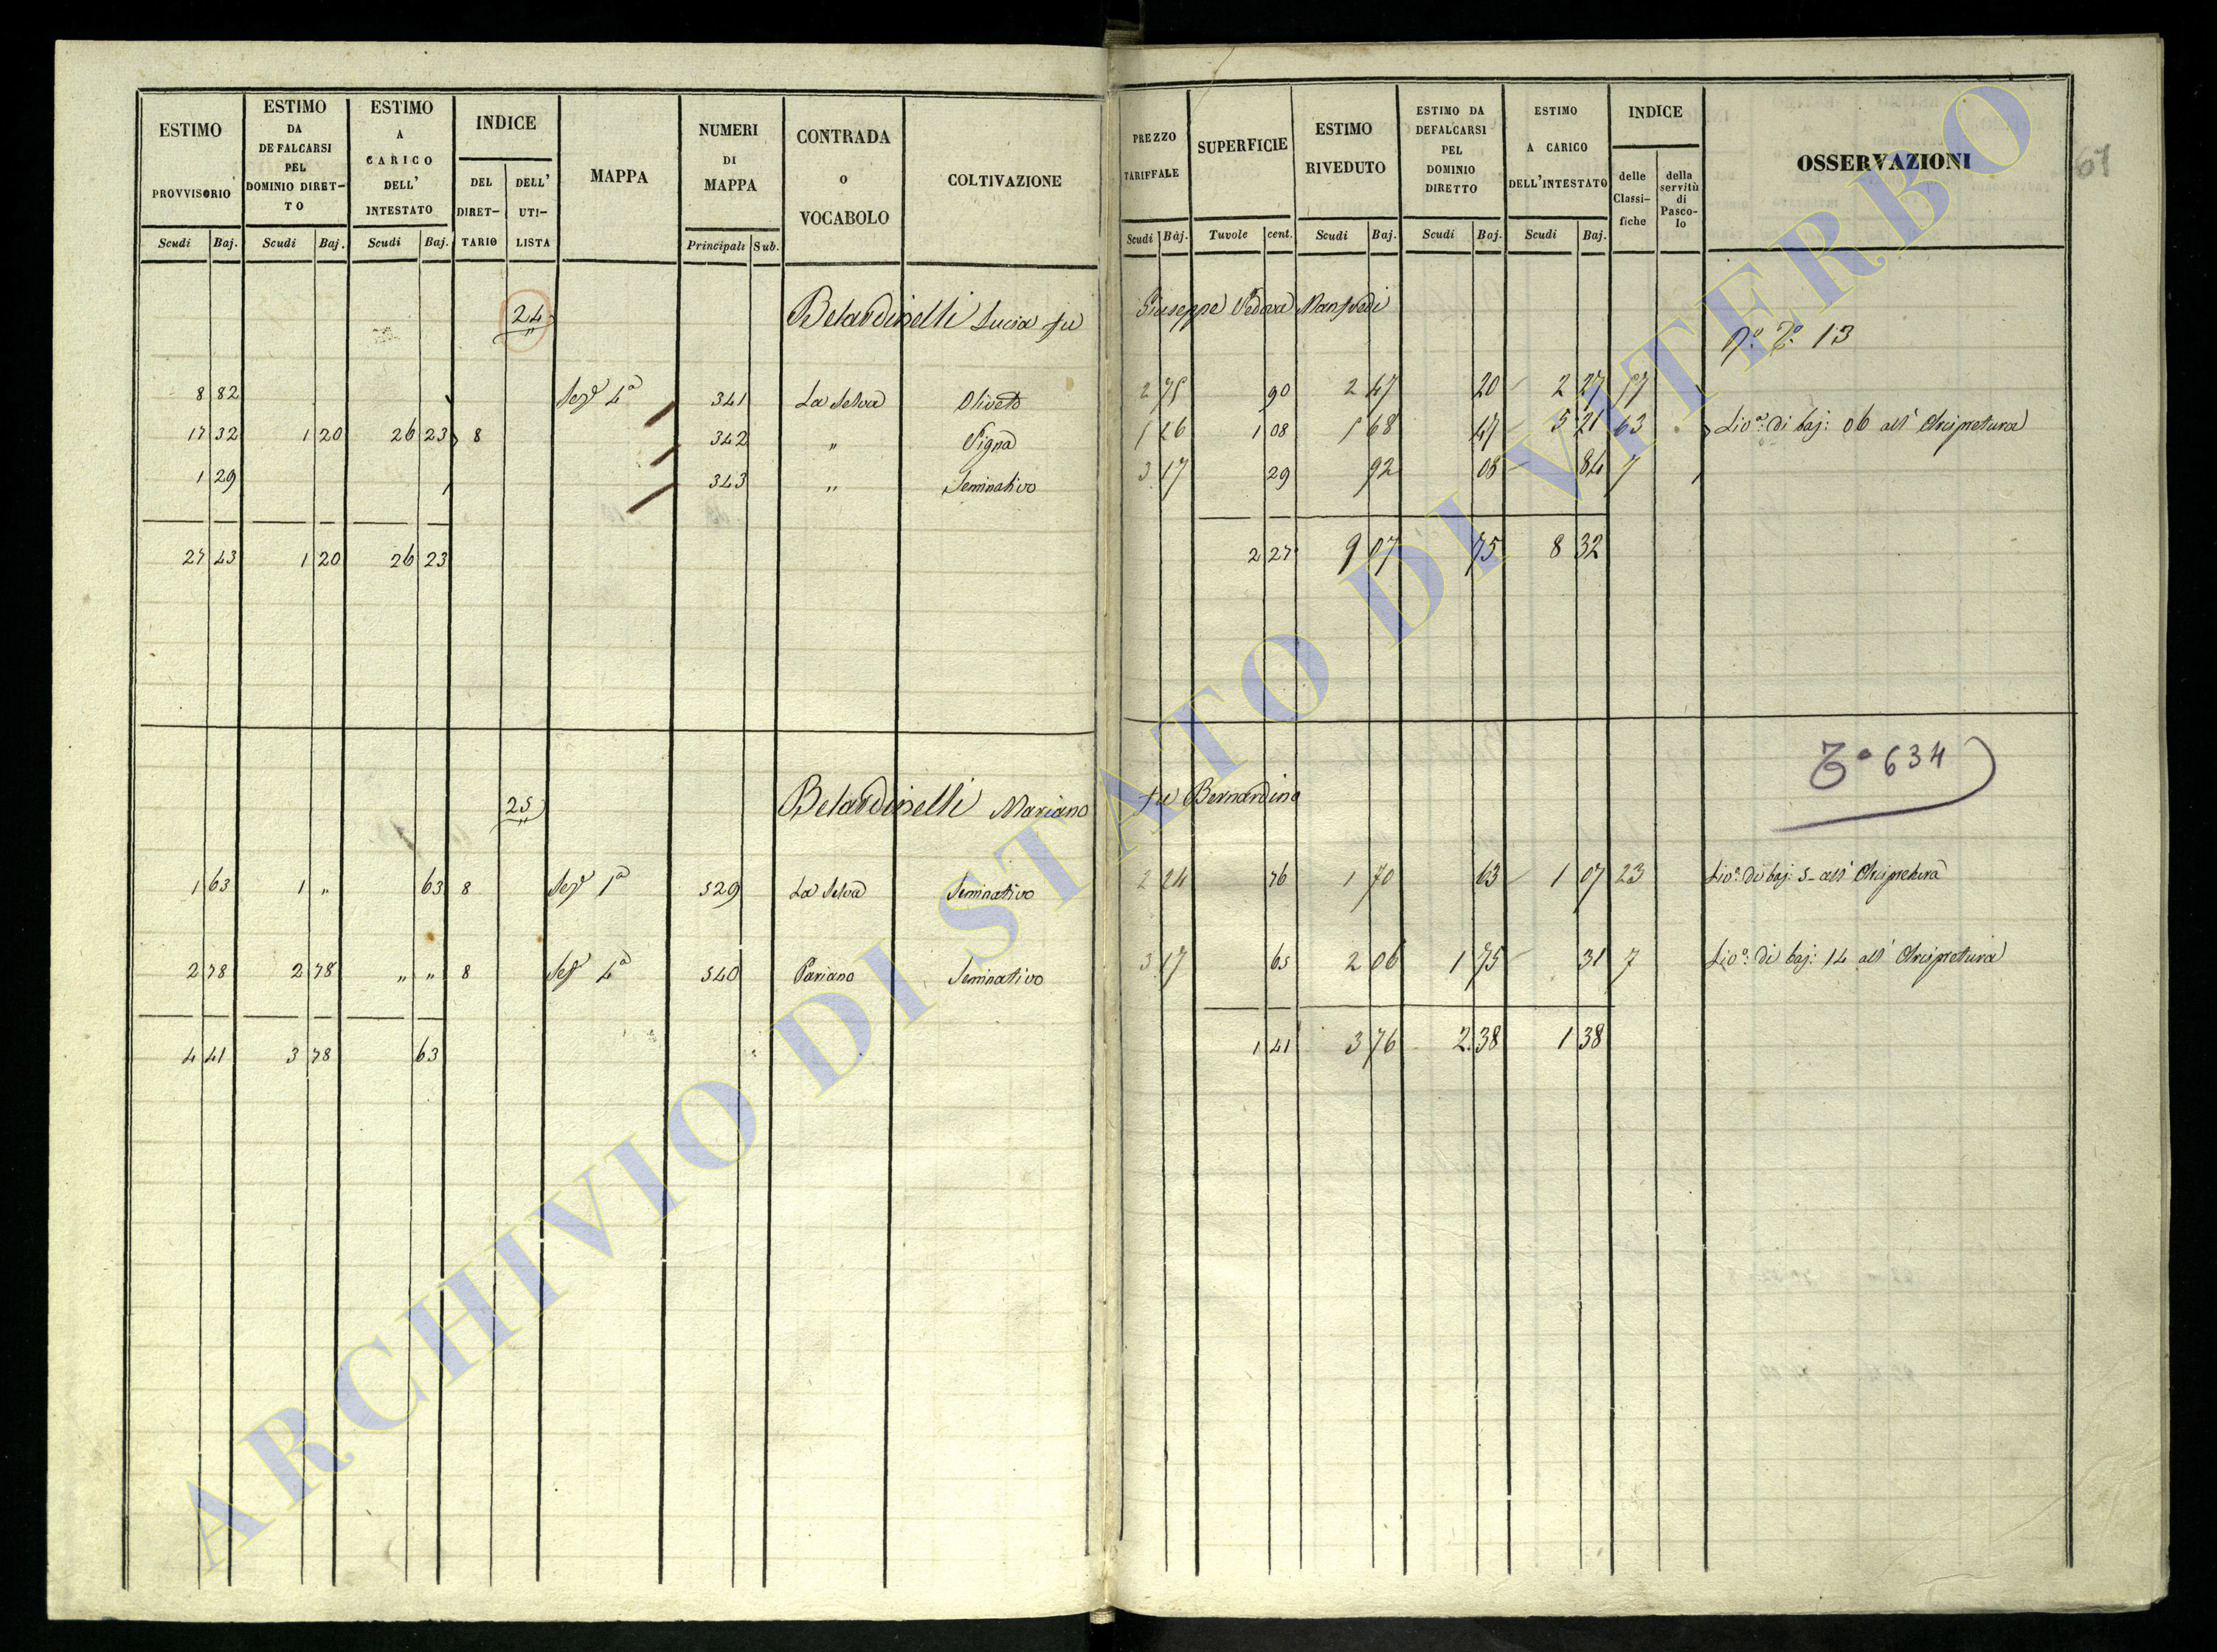 ESTIMO PROVVISORIO Scudi Baj.
ESTIMO DA DEFALCARSI PEL DOMINIO DIRET-TO Scudi Baj.
ESTIMO A CARICO DELL' INTESTATO Scudi Baj.
INDICE DEL DIRET-TARIO DELL' UTI-LISTA
MAPPA
NUMERI DI MAPPA Principali Sub.
CONTRADA o VOCABOLO
COLTIVAZIONE
PREZZO TARIFFALE Scudi Baj.
SUPERFICIE Tuvole cent.
ESTIMO RIVEDUTO Scudi Baj.
ESTIMO DA DEFALCARSI PEL DOMINIO DIRETTO Scudi Baj.
ESTIMO A CARICO DELL'INTESTATO Scudi Baj.
INDICE delle Classi-fiche della servitù di Pasco-lo
OSSERVAZIONI
61
24 Belardinelli Lucia fu Giuseppe Vedova Manfredi
N.° T.° 13
8 82 Sez.e 4a 341 La Selva Oliveto 2 75 90 2 47 20 2 27 57
17 32 1 20 26 23 8 342 " Vigna 5 26 1 08 5 68 47 5 21 63 Liv.o di baj: 06 all' Arcipretura
1 29 343 " Seminativo 3 17 29 92 08 84 7
27 43 1 20 26 23 2 27 9 07 75 8 32
T° 634
25 Belardinelli Mariano fu Bernardino
1 63 1 " 63 8 Sez.e 1a 529 La Selva Seminativo 2 24 76 1 70 63 1 07 23 Liv.o di baj: 5 all' Arcipretura
2 78 2 78 " " 8 Sez.e 4a 540 Pariano Seminativo 3 17 65 2 06 1 75 31 7 Liv.o di baj: 14 all' Arcipretura
4 41 3 78 63 1 41 3 76 2 38 1 38
ARCHIVIO DI STATO DI VITERBO